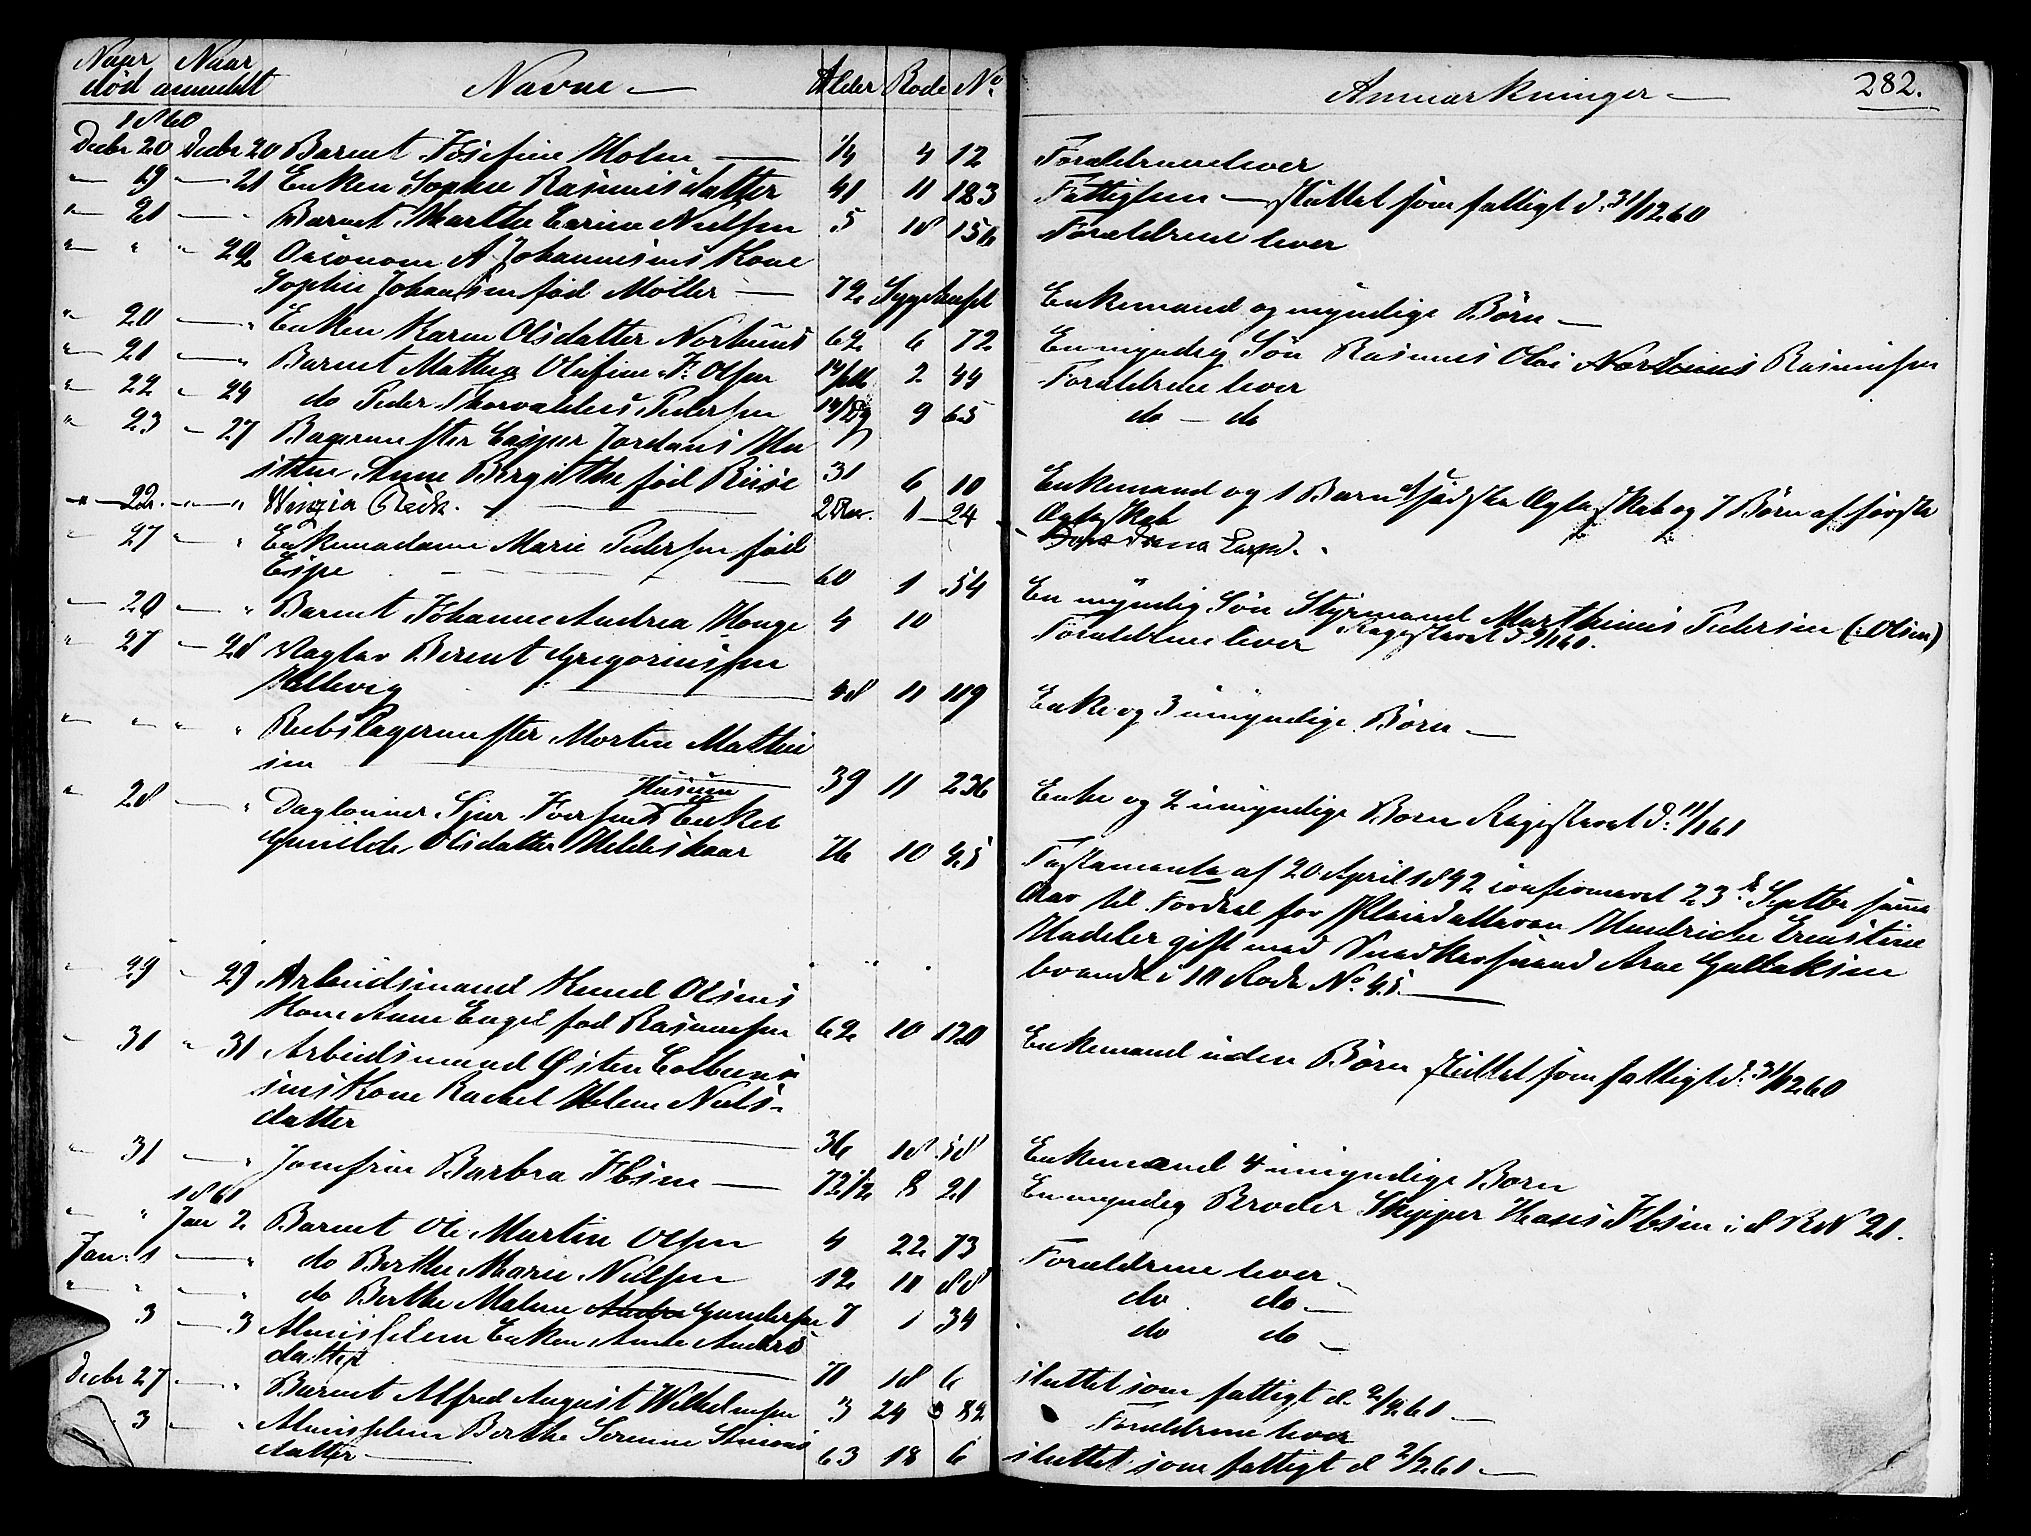 Naar Naar
død anmeldt Navne — Alder Rode No.
1860
Decbr 20 Decbr 20 Barnet Josefine Holm — 1/4 4 12
" 19 — 21 Enken Sophie Rasmusdatter 41 11 183
" 21 — " Barnet Marthe Carine Nielsen 5 18 156
" " " 22 Oeconom A Johannesens Kone
Sophie Johannesen fød Møller — 72 Sygehuset
" 20 — " Enken Karen Olsdatter Norhuus 62 6 72
" 21 — " Barnet Mathea Olufine F. Olsen 2 44
" 22 " 24 do Peder Thorvaldus Pedersen 9 65
" 23 — 27 Bagermester Casper Jordans Hu
strue Anne Bergitthe fød Riise 31 6 10
" 22. " " 1 - 24
" 27 — " Enkemadame Marie Pedersen fød
Espe — 60 1 54
— 20 — " Barnet Johanne Andrea Hauge 4 10
" 27 — 28 Vægter Berent Gregoriussen
Hellevig — 48 11 119
" " " " Rebslagermester Morten Mathie
sen — 39 11 236
Husum
" 28 — " Daglønner Sjur Iversens Enke
Gunilde Olsdatter Heldeskaar 76 10 45
" 29 " 29 Arbeidsmand Knud Olsens
Kone Anne Engel fød Rasmussen 62 10 120
" 31 " 31 Arbeidsmand Østen Colbeen
sens Kone Rachel Helene Niels-
datter 36 18 58
" 31 — " Jomfrue Barbra Ibsen — 72 1/2 8 21
1861
" " Jan 2 Barnet Ole Martin Olsen 4 22 73
Jan. 1 — " do Berthe Marie Nielsen 12 11 88
" " — " do Berthe Malene Gundersen 7 1 34
3 — 3 Almisselem Enken Anne Anders
datter — 70 18 6
Decbr 27 — " Barnet Alfred August Wilhelmsen 3 24 82
" 3 " " Almisselem Berthe Serene Simons
datter — 63 18 6
Anmærkninger — 282.
Forældrene lever
Fattiglem — sluttet som fattigt d. 31/12 60
Forældrene lever
Enkemand og myndige Børn —
En myndig Søn Rasmus Olai Norhuus Rasmussen
Forældrene lever
do — do
Enkemand og 1 Barn af sidste Ægteskab og 7 Børn af første
Ægteskab
En myndig Søn Styrmand Marthinus Pedersen (: Olsen)
Forældrene lever Registreret d.
Enke og 3 umyndige Børn —
Enke og 2 umyndige Børn Registeret d. 11/1 61
Testamente af 20 April 1842 confirmeret 23de Septbr samme
Aar til Fordeel for Pleiedatteren Hendriche Ernstine
Hadeler gift med Snedkersvend Arne Gullaksen
boende i 10 Rode No. 45 —
Enkemand uden Børn sluttet som fattigt d. 31/12 60
Enkemand 4 umyndige Børn
En myndig Broder Skipper Hans Ibsen i 8 R N 21.
Forældrene lever —
do do —
do do —
sluttet som fattigt d. 2/2 61 —
Forældrene lever
sluttet som fattigt d 2/2 61 —